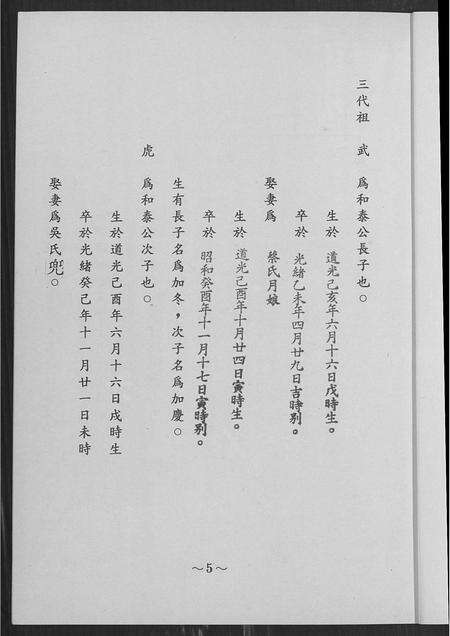 三代祖　武　為和泰公長子也。
生於　道光己亥年六月十六日戌時生。
卒於　光緒乙未年四月廿九日吉時別。
娶妻為　蔡氏月娘
生於　道光己酉年十月廿四日寅時生。
卒於　昭和癸酉年十一月十七日寅時別。
生有長子名為加冬，次子名為加慶。
虎　為和泰公次子也。
生於道光己酉年六月十六日戌時生
卒於光緒癸己年十一月廿一日未時
娶妻為吳氏兜。
～5～